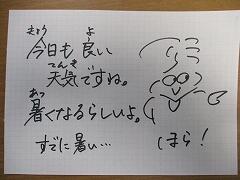 きょう よ
今日も良い
てんき
天気ですね。
あつ
暑くなるらしいよ。
すでに暑い…
ほら!